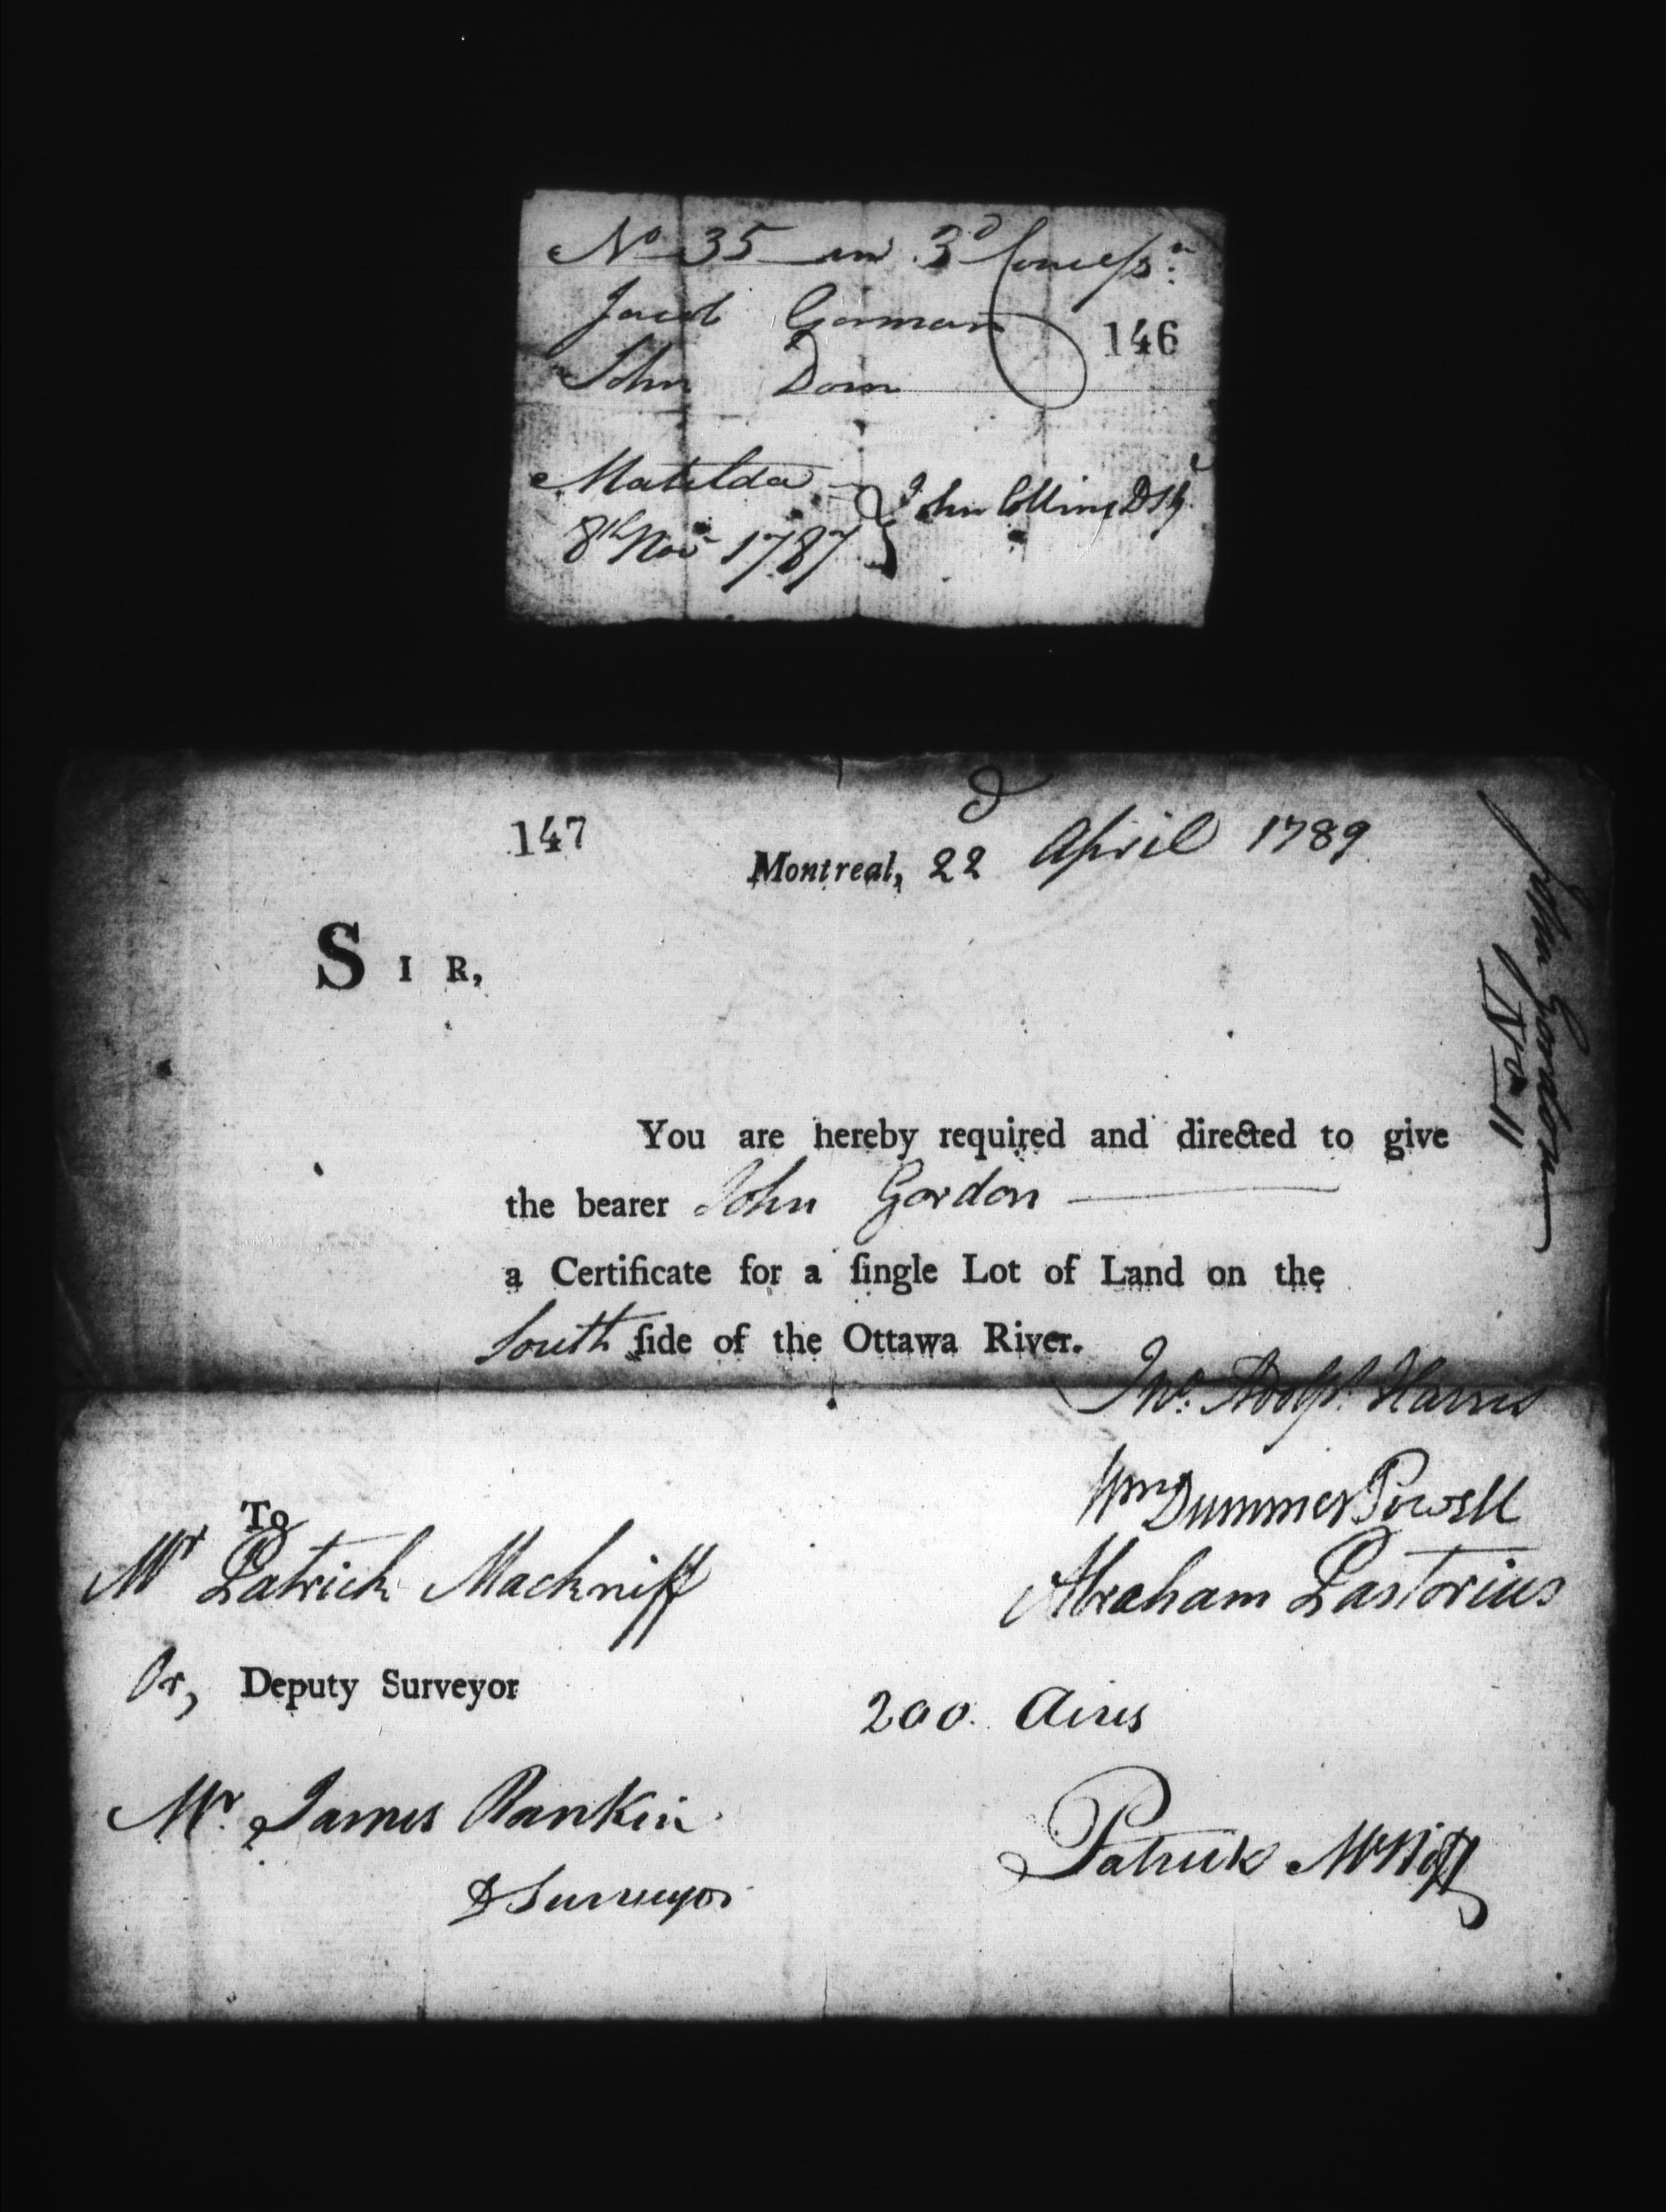 No 35 in 3d Concessn.
Jacob Gorman
146
John Dorn
Matilda
8th Novr 1787
John Collins D S G
147
Montreal, 22d April 1789
SIR,
You are hereby required and directed to give
the bearer John Gordon
a Certificate for a ſingle Lot of Land on the
South ſide of the Ottawa River.
Jno. Adolps. Harris
Wm Dummer Powell
Abraham Pastorius
To
Mr Patrick Mackniff
Or, Deputy Surveyor
200 Acres
Mr. James Rankin
D Surveyor
Patrick McNiff
John Gordon
No 11